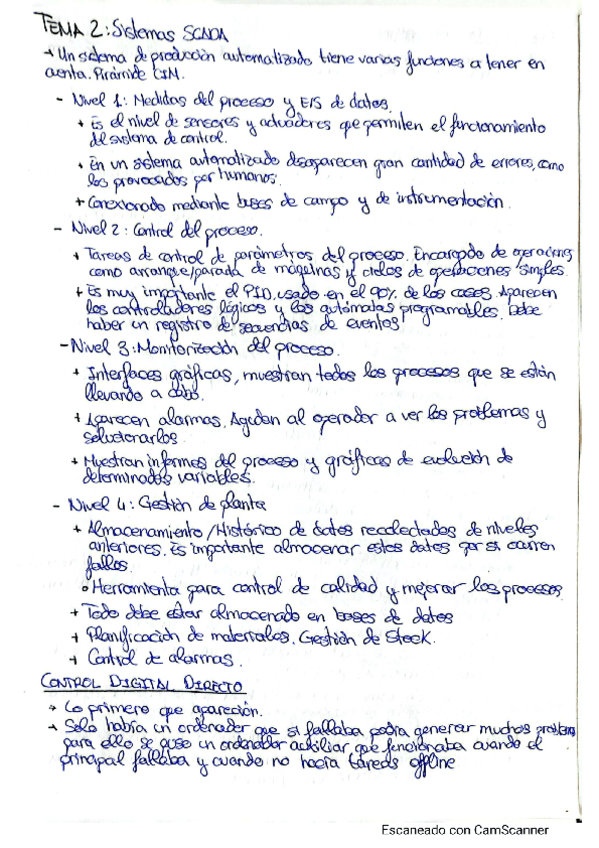 TEMA 2: Sistemas SCADA
→ Un sistema de producción automatizado tiene varias funciones a tener en
cuenta. Pirámide CIM.
- Nivel 1: Medidas del proceso y E/S de datos.
+ Es el nivel de sensores y actuadores que permiten el funcionamiento
del sistema de control.
+ En un sistema automatizado desaparecen gran cantidad de errores, como
los provocados por humanos.
+ Conexionado mediante buses de campo y de instrumentación.
- Nivel 2: Control del proceso.
+ Tareas de control de parámetros del proceso. Encargado de operaciones
como arranque/parada de máquinas y ciclos de operaciones simples.
+ Es muy importante el PID, usado en el 90% de los casos. Aparecen
los controladores lógicos y los autómatas programables. Debe
haber un registro de secuencias de eventos!
- Nivel 3: Monitorización del proceso.
+ Interfaces gráficas, muestran todos los procesos que se están
llevando a cabo.
+ Aparecen alarmas. Ayudan al operador a ver los problemas y
solucionarlos.
+ Muestran informes del proceso y gráficas de evolución de
determinadas variables.
- Nivel 4: Gestión de planta
+ Almacenamiento/Histórico de datos recolectados de niveles
anteriores. Es importante almacenar estos datos por si ocurren
fallos.
o Herramienta para control de calidad y mejorar los procesos.
+ Todo debe estar almacenado en bases de datos
+ Planificación de materiales. Gestión de Stock.
+ Control de alarmas.
CONTROL DIGITAL DIRECTO
→ Lo primero que apareción.
→ Solo había un ordenador que si fallaba podía generar muchos problemas
para ello se puso un ordenador auxiliar que funcionaba cuando el
principal fallaba y cuando no hacía tareas offline
Escaneado con CamScanner